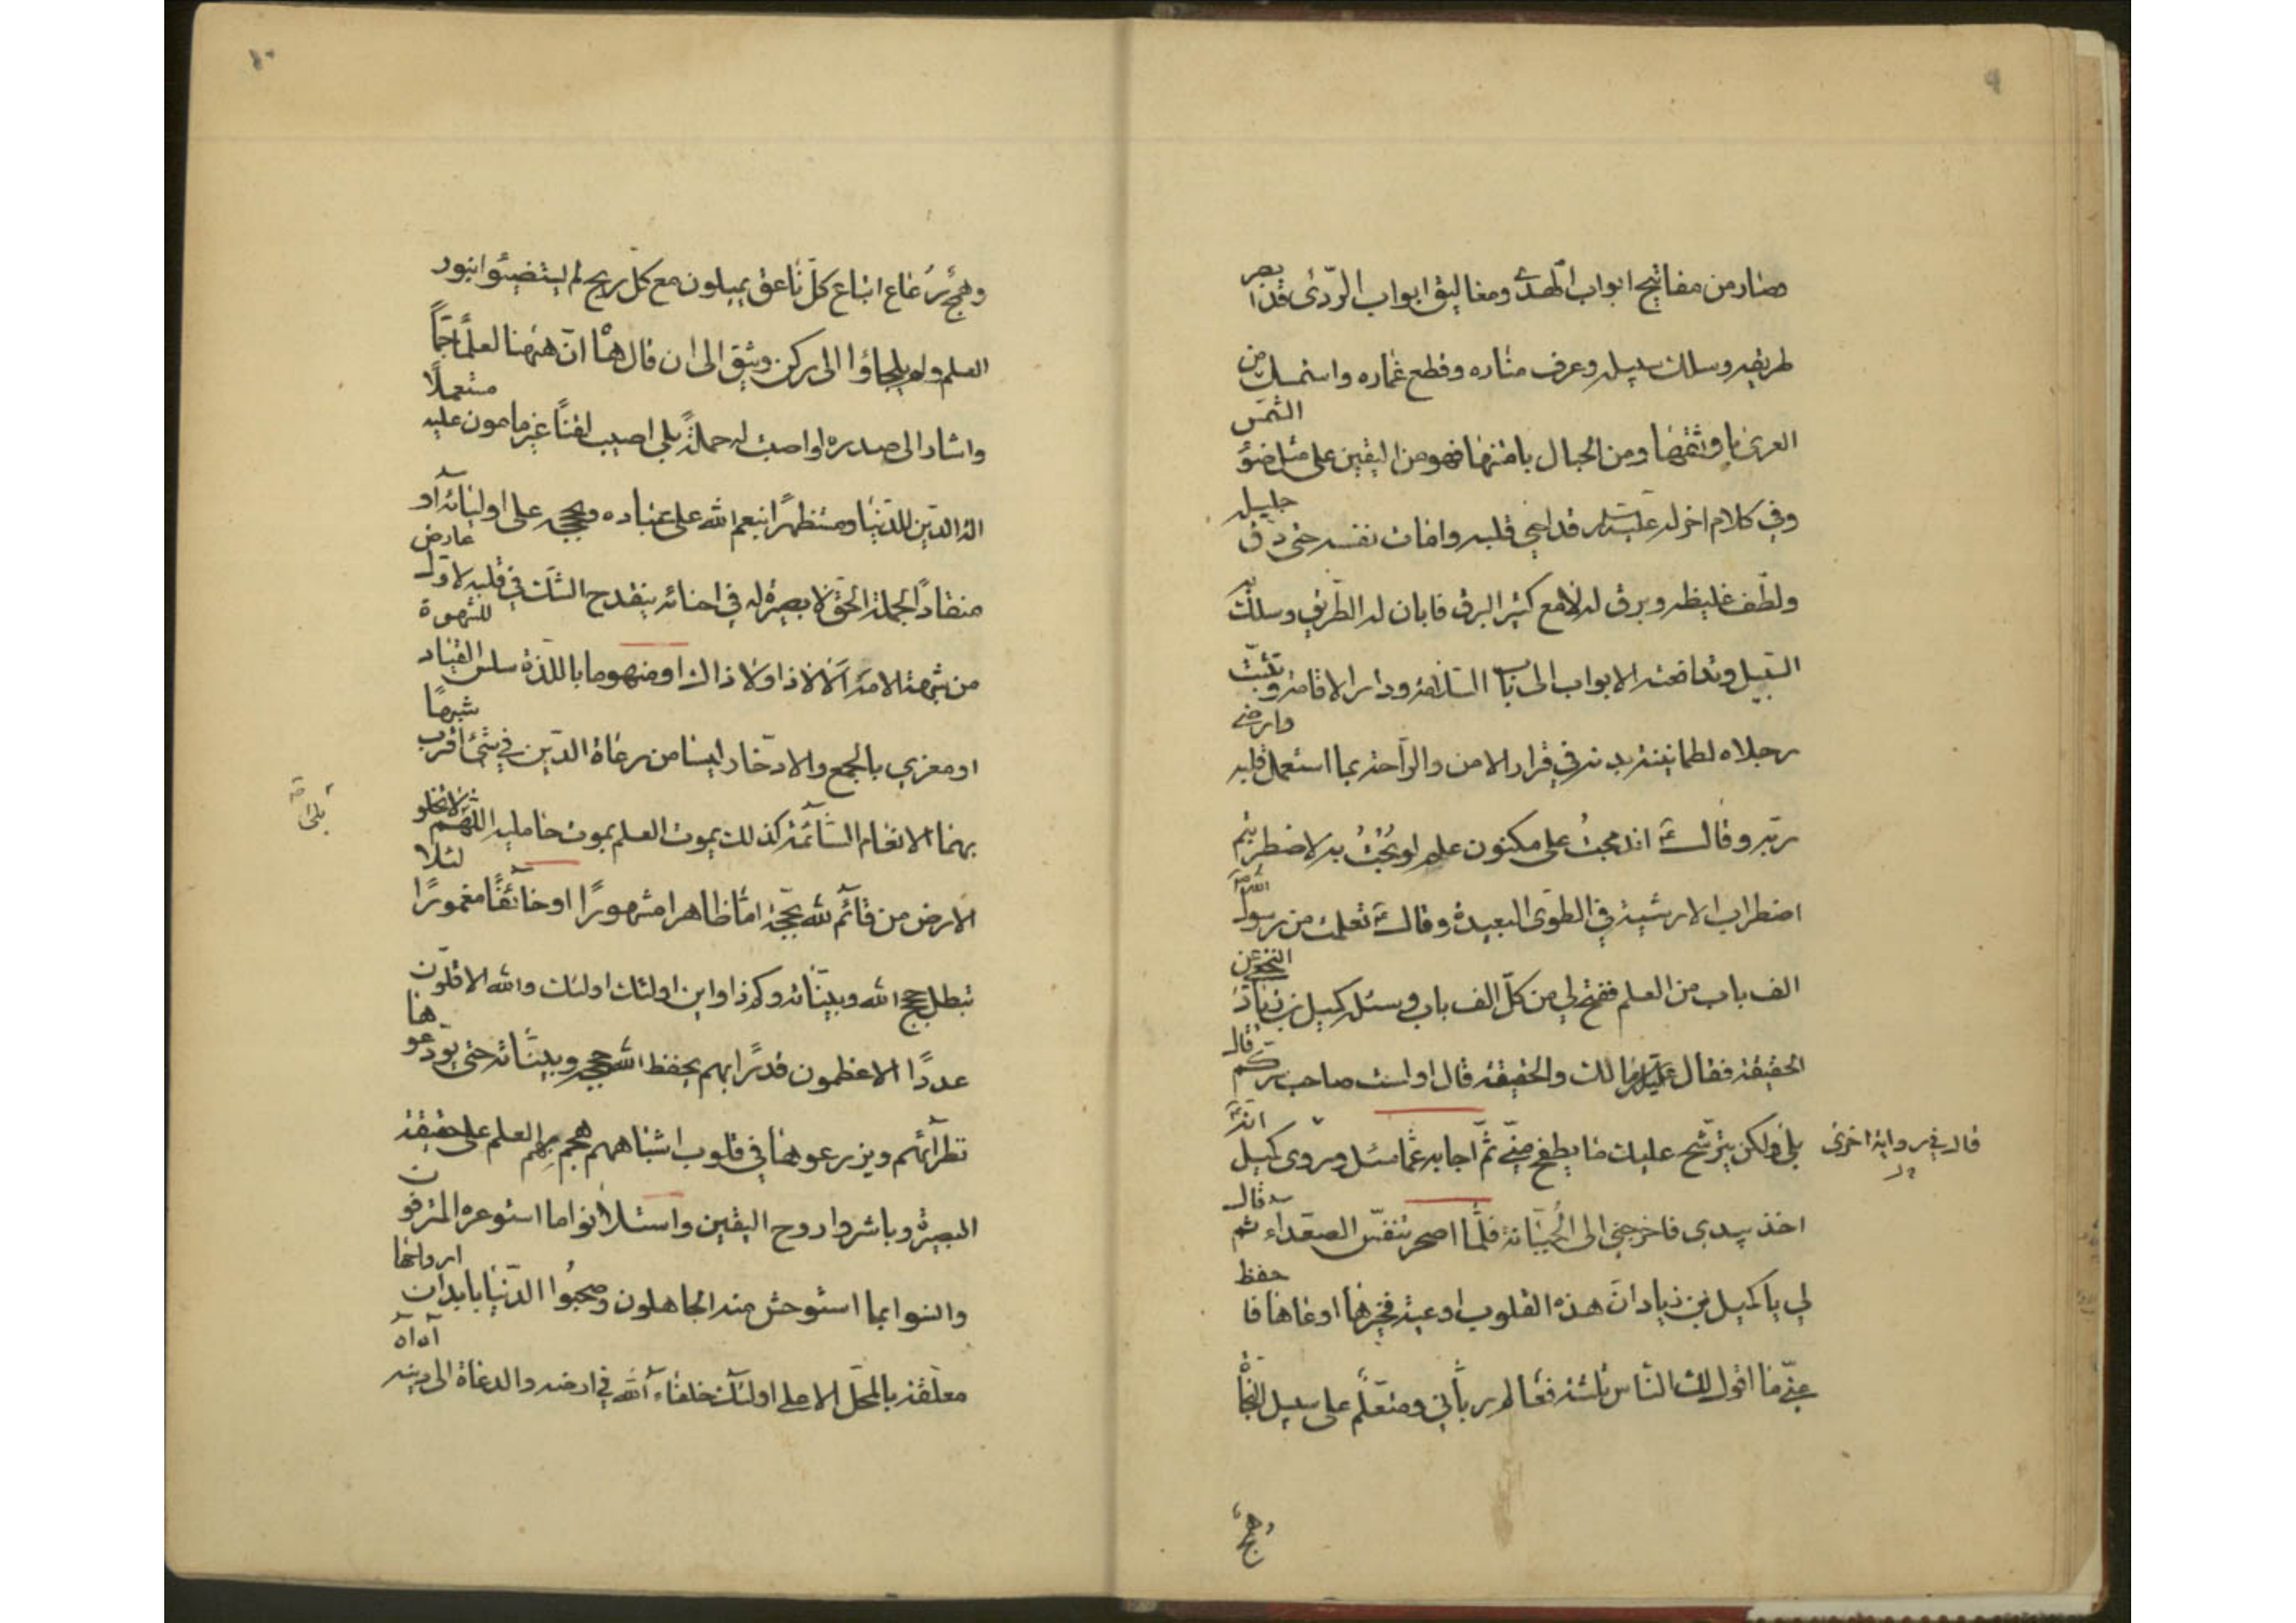 ٩
فصار من مفاتيح ابواب الهدى ومغاليق ابواب الردى قد ابصر
طريقه وسلك سبيله وعرف مناره وقطع غماره واستمسك من
العرى باوثقها ومن الحبال بامتنها فهو من اليقين على مثل ضوء الشمس
وفي كلام اخر له عليه السلام قد احيى قلبه وامات نفسه حتى دق جليله
ولطف غليظه وبرق له لامع كثير البرق فابان له الطريق وسلك به
السبيل وتدافعته الابواب الى باب السلامة ودار الاقامة وتثبت
رجلاه لطمانينة بدنه في قرار الامن والراحة بما استعمل قلبه وارضى
ربه وقال ع اندمجت على مكنون علم لو بحت به لاضطربتم
اضطراب الارشية في الطوى البعيدة وقال ع تعلمت من رسول الله ص
الف باب من العلم ففتح لي من كل الف باب وسئله كميل بن زياد النخعي عن
الحقيقة فقال ع مالك والحقيقة قال اولست صاحب سرك قال
بلى ولكن يترشح عليك ما يطفح مني ثم اجابه عما سئل وروى كميل انه ع
قال في رواية اخرى
اخذ بيدي فاخرجني الى الجبانة فلما اصحر تنفس الصعداء ثم قال
لي يا كميل بن زياد ان هذه القلوب اوعية فخيرها اوعاها فاحفظ
عني ما اقول لك الناس ثلثة فعالم رباني ومتعلم على سبيل النجاة
وهمج
١٠
وهمج رعاع اتباع كل ناعق يميلون مع كل ريح لم يستضيئوا بنور
العلم ولم يلجاؤا الى ركن وثيق الى ان قال ها ان ههنا لعلما جما
واشار الى صدره لو اصبت له حملة بلى اصيب لقنا غير مامون عليه مستعملا
الة الدين للدنيا ومستظهرا بنعم الله على عباده وبحججه على اوليائه او
منقادا لجملة الحق لا بصيرة له في احنائه ينقدح الشك في قلبه لاول عارض
من شبهة الا مة الا لا ذا ولا ذاك او منهوما باللذة سلس القياد للشهوة
او مغرى بالجمع والادخار ليسا من رعاة الدين في شئ اقرب شبها
بهما الانعام السائمة كذلك يموت العلم بموت حامليه اللهم لا تخلو
بلى
الارض من قائم لله بحجة اما ظاهرا مشهورا او خائفا مغمورا لئلا
تبطل حجج الله وبيناته وكم ذا واين اولئك اولئك والله الاقلون
عددا الاعظمون قدرا بهم يحفظ الله حججه وبيناته حتى يودعوها
نظرائهم ويزرعوها في قلوب اشباههم هجم بهم العلم على حقيقة
البصيرة وباشروا روح اليقين واستلانوا ما استوعره المترفون
وانسوا بما استوحش منه الجاهلون وصحبوا الدنيا بابدان ارواحها
معلقة بالمحل الاعلى اولئك خلفاء الله في ارضه والدعاة الى دينه آه آه